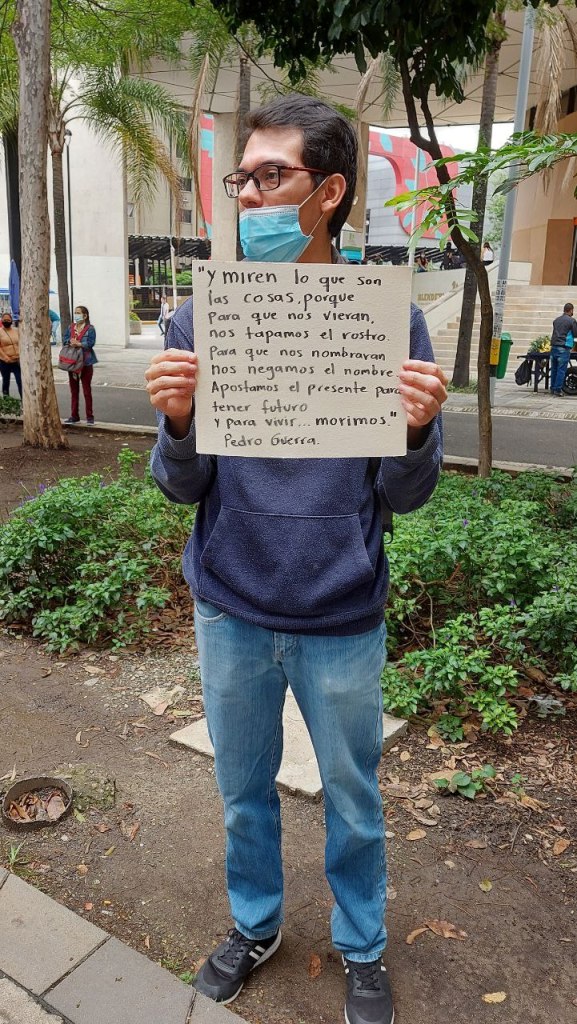 "Y miren lo que son
las cosas, porque
para que nos vieran,
nos tapamos el rostro.
Para que nos nombraran
nos negamos el nombre
Apostamos el presente para
tener futuro
y para vivir... morimos."
Pedro Guerra.